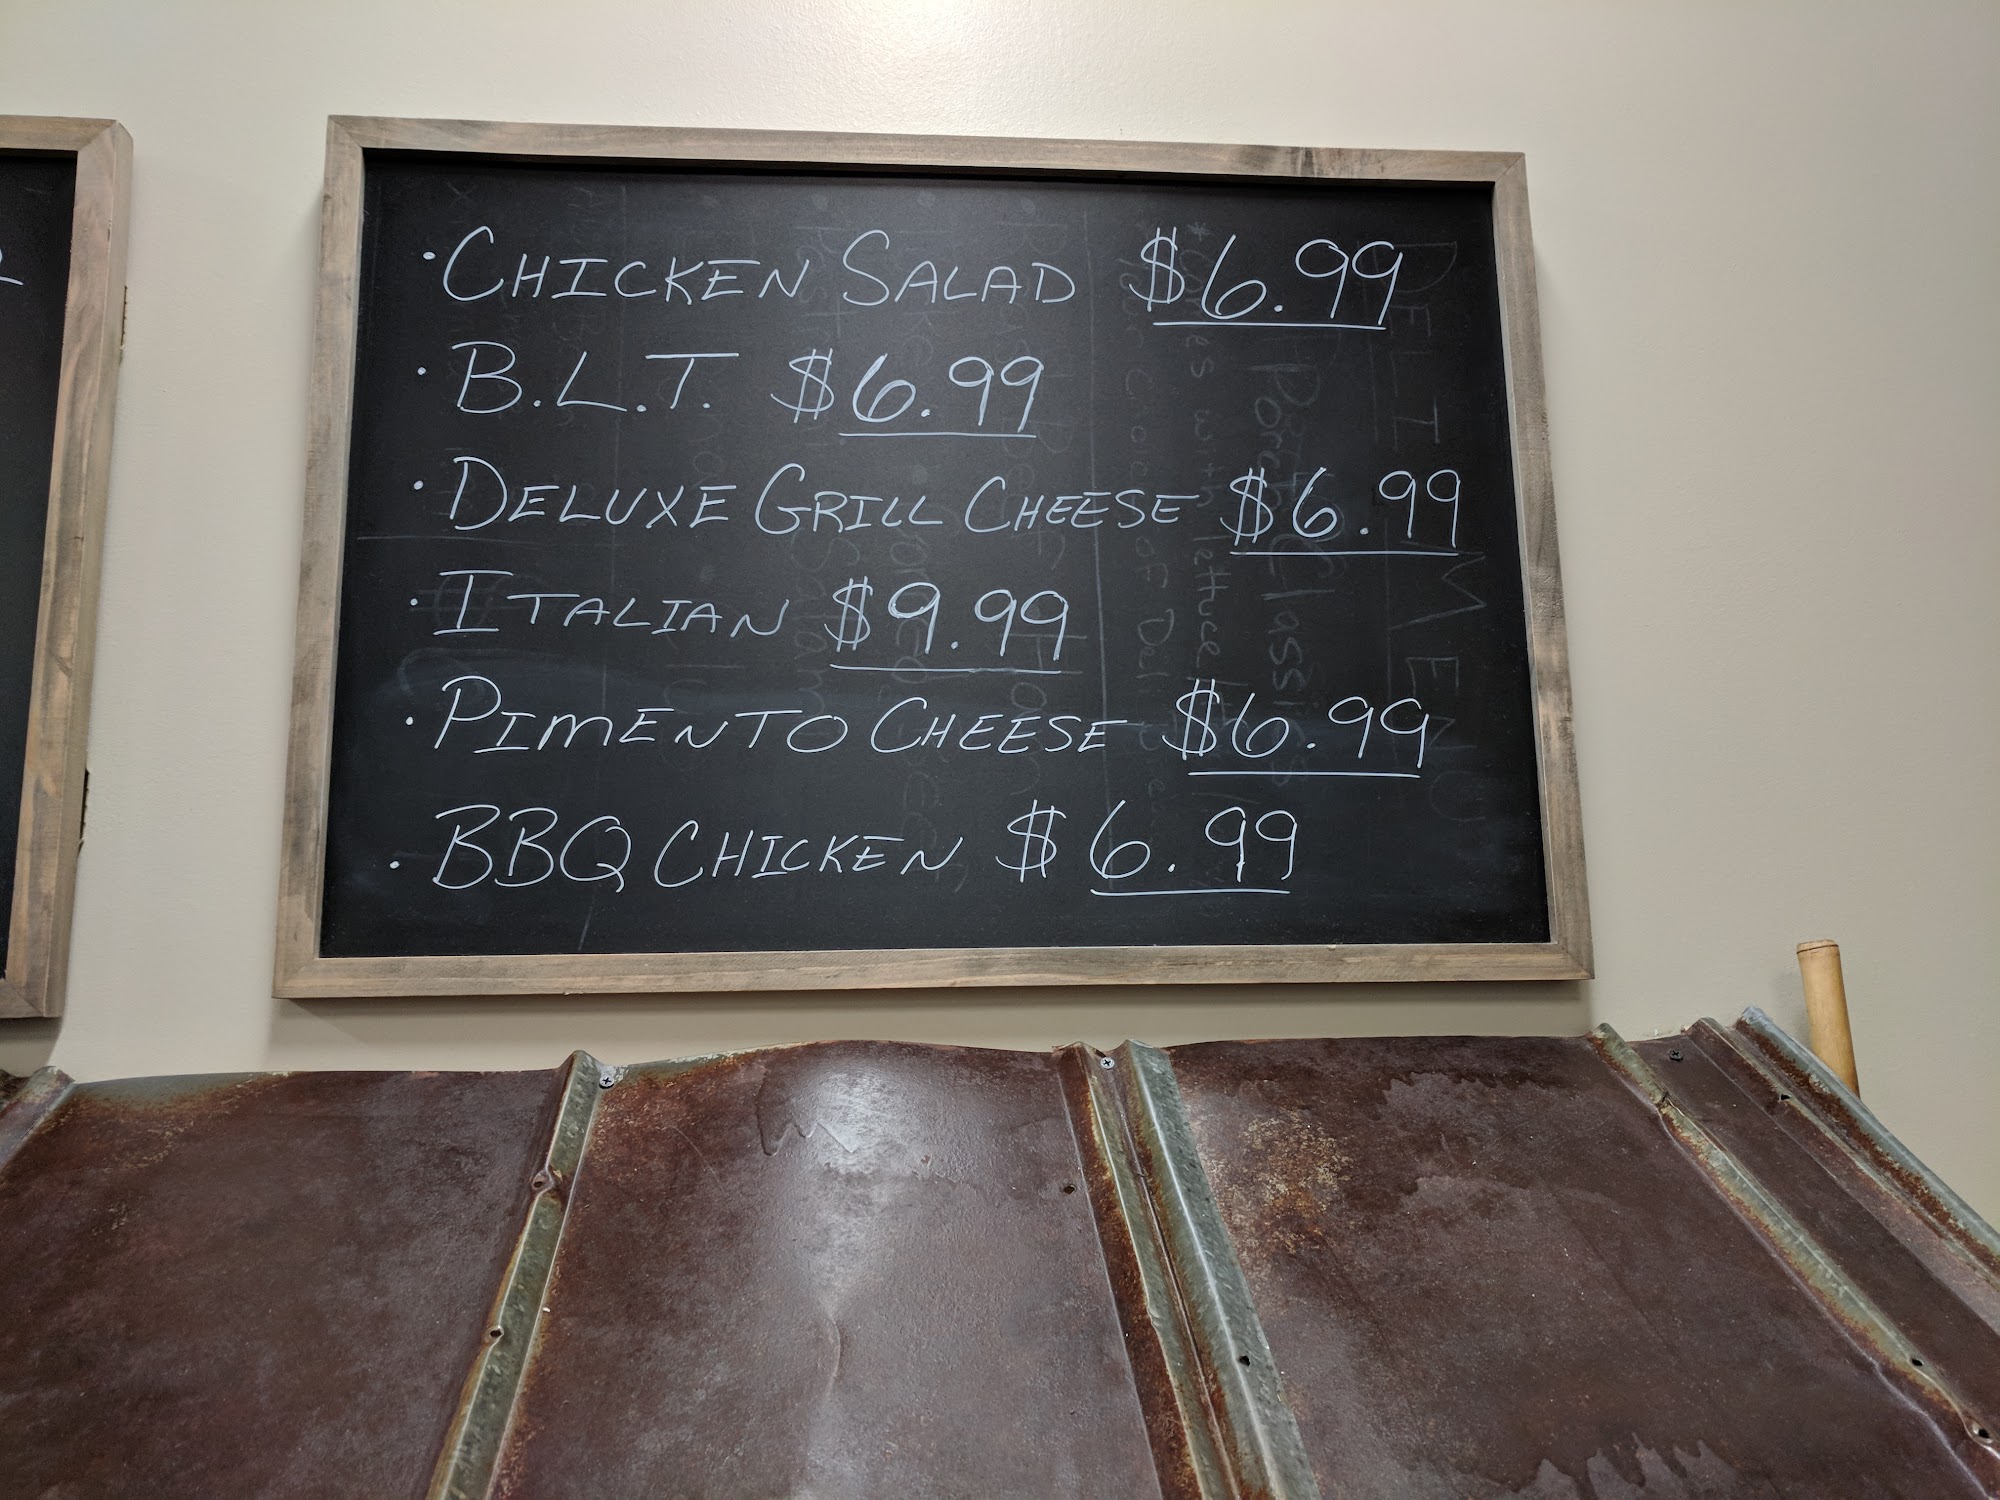 · CHICKEN SALAD $6.99
· B.L.T. $6.99
· DELUXE GRILL CHEESE $6.99
· ITALIAN $9.99
· PIMENTO CHEESE $6.99
· BBQ CHICKEN $6.99
DELI MENU